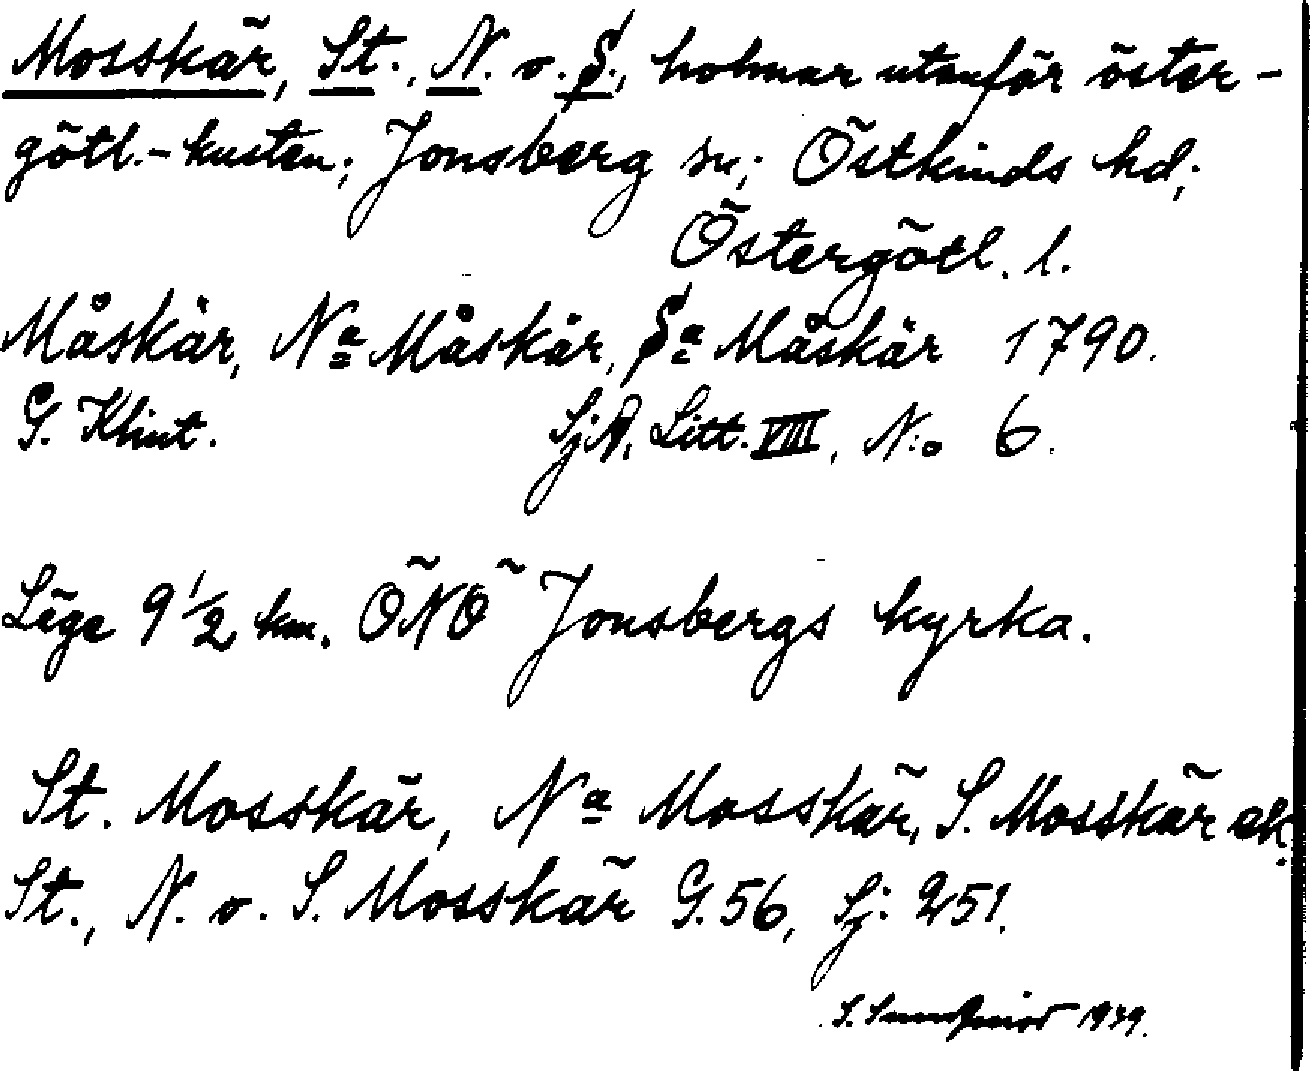 Mosskär, St., N. o. S., holmar utanför öster-
götl.-kusten; Jonsberg sn; Östkinds hd;
Östergötl. l.
Måskär, Na Måskär, Sa Måskär 1790.
G. Klint. SjA, Litt. VIII, N:o 6.
Läge 9 1/2 km. ÖNÖ Jonsbergs kyrka.
St. Mosskär, Na Mosskär, S. Mosskär ek.
St., N. o. S. Mosskär G. 56, Sj: 251.
S. 1939.